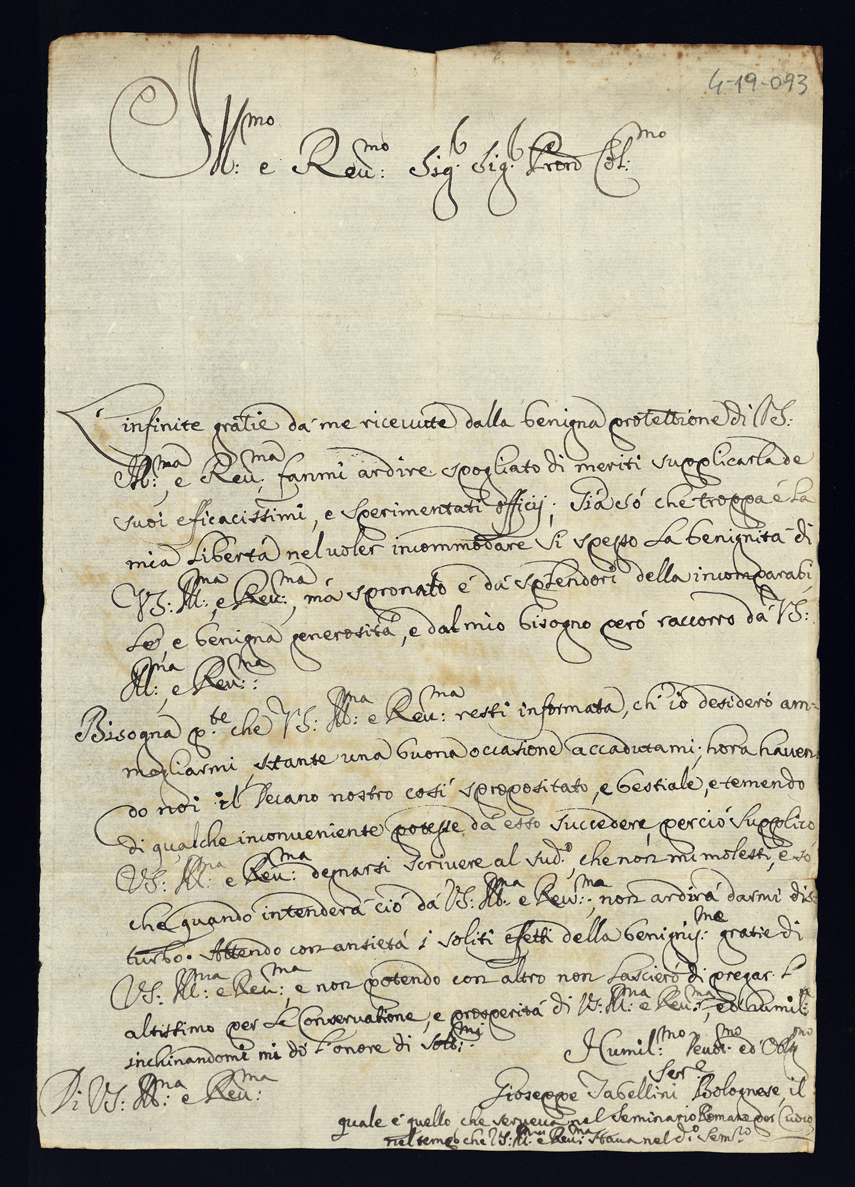 4-19-093
Ill:mo e Reu:mo Sig:r Sig:r Prone Col:mo
L'infinite gratie da me riceuute dalla benigna protettione di VS:
Ill:ma, e Reu:ma, fanmi ardire spogliato di meriti supplicarla de
suoi efficacissimi, e sperimentati officij; Già só che troppa é la
mia libertà nel uoler incommodare si spesso la benignità di
VS: Ill:ma e Reu:ma, má spronato é dá splendori della incomparabi
le, e benigna generosità, e dal mio bisogno peró raccorro dá VS:
Ill:ma, e Reu:ma:
Bisogna p.te che VS: Ill:ma e Reu:ma resti informata, ch'io desideró am=
mogliarmi, stante una buona occasione accadutami; hora hauen
do noi il Decano nostro cosí spropositato, e bestiale, e temendo
di qualche inconueniente potesse dá esso succedere, perció supplico
VS: Ill:ma e Reu:ma degnarsi scriuere al sud.o, che non mi molesti, e só
che quando intenderà ció dá VS: Ill:ma e Reu:ma, non ardirá darmi dis=
turbo. Attendo con ansietá i soliti effetti della benignis:me gratie di
VS: Ill:ma e Reu:ma, e non potendo con altro non lascieró di pregar l'
altissimo per la Conseruatione, e prosperitá di VS: Ill:ma e Reu:ma, ed humil:te
inchinandomi mi dó l'onore di
Di VS: Ill:ma e Reu:ma
Humil:mo Deuot:mo ed Oblig:mo
Ser.e
Gioseppe Tabellini Bolognese, il
quale é quello che serueua nel Seminario Romano per Cuoco
nel tempo che VS: Ill:ma e Reu:ma staua nel d.o Sem.rio